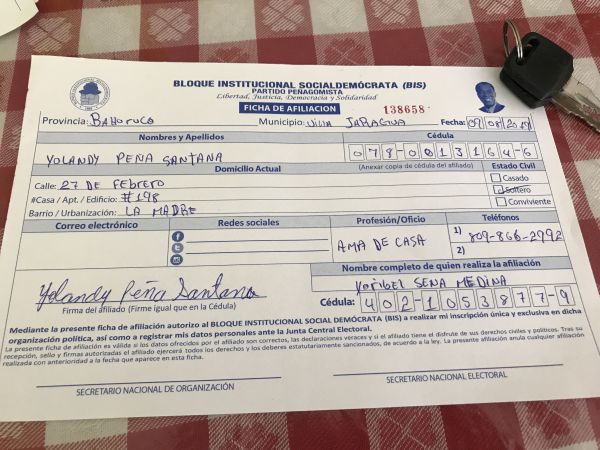 BLOQUE INSTITUCIONAL SOCIALDEMÓCRATA (BIS)
PARTIDO PEÑAGOMISTA
Libertad, Justicia, Democracia y Solidaridad
FICHA DE AFILIACION 138658
Provincia: BAHORUCO Municipio: VILLA JARAGUA Fecha: 09/08/2019
Nombres y Apellidos Cédula
YOLANDY PEÑA SANTANA 078-0013164-6
Domicilio Actual (Anexar copia de cédula del afiliado) Estado Civil
Calle: 27 DE FEBRERO Casado
#Casa / Apt. / Edificio: #198 Soltero
Barrio / Urbanización: LA MADRE Conviviente
Correo electrónico Redes sociales Profesión/Oficio Teléfonos
AMA DE CASA 1) 809-866-2992
2)
Nombre completo de quien realiza la afiliación
Yolandy Peña Santana YORIBEL SENA MEDINA
Firma del afiliado (Firme igual que en la Cédula) Cédula: 402-1053877-9
Mediante la presente ficha de afiliación autorizo al BLOQUE INSTITUCIONAL SOCIAL DEMÓCRATA (BIS) a realizar mi inscripción única y exclusiva en dicha
organización política, así como a registrar mis datos personales ante la Junta Central Electoral.
La presente ficha de afiliación es válida si los datos ofrecidos por el afiliado son correctos, las declaraciones veraces y si el afiliado tiene el disfrute de sus derechos civiles y políticos. Tras su
recepción, sello y firmas autorizadas el afiliado ejercerá todos los derechos y los deberes estatutariamente sancionados, de acuerdo a la ley. La presente afiliación anula cualquier afiliación
realizada con anterioridad a la fecha que aparece en esta ficha.
SECRETARIO NACIONAL DE ORGANIZACIÓN SECRETARIO NACIONAL ELECTORAL